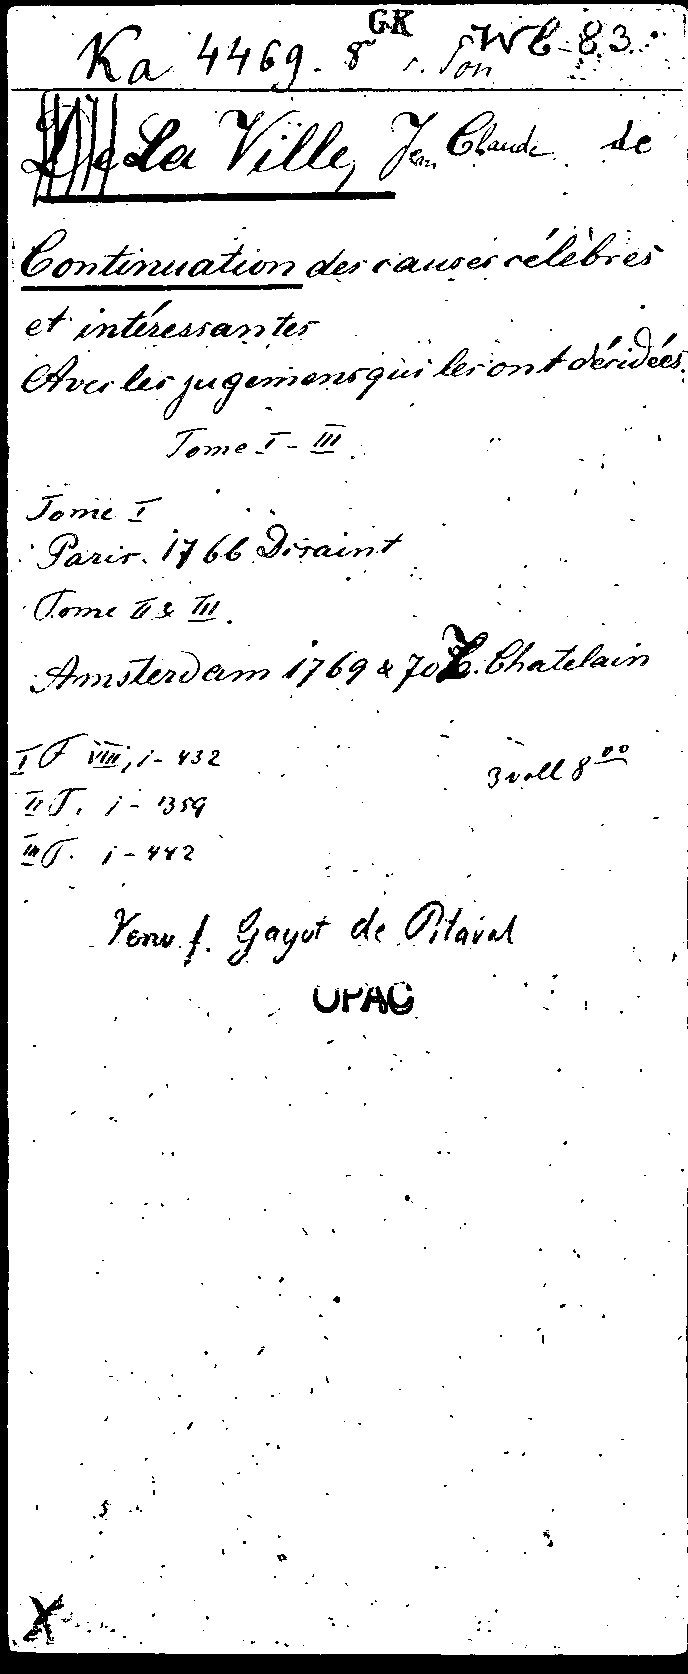 GK
Ka 4469. 8° s. Ton Wb 83.
De La Ville, Jean Claude de
Continuation des causes célèbres
et intéressantes
Avec les jugemens qui les ont décidées.
Tome I - III.
Tome I
Paris. 1766 Desaint
Tome II & III.
Amsterdam 1769 & 70 Z. Chatelain
I T VIII, 1 - 432
3 voll 8°°
II T. 1 - 359
III T. 1 - 442
Verw. f. Gayot de Pitaval
OPAC
X